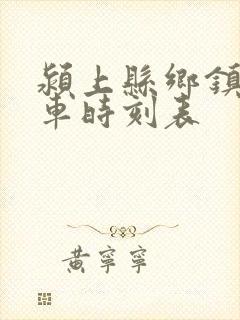 潁上縣鄉鎮
車時刻表
黃寧寧